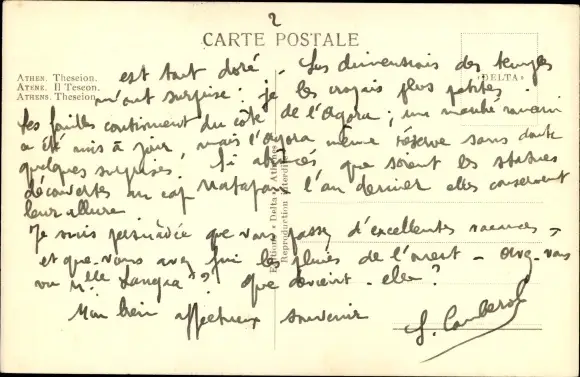 2
CARTE POSTALE
ATHEN. Theseion.
ATENE. Il Teseon.
ATHENS. Theseion.
"DELTA"
Editions « Delta » Athènes
Reproduction interdite
est tout doré. Les dimensions des temples
m'ont surprise : je les croyais plus petites.
Les fouilles continuent du côté de l'Agora ; une marché romain
a été mis à jour, mais l'Agora même réserve sans doute
quelques surprises. Si abîmées que soient les statues
découvertes au cap Matapan l'an dernier elles conservent
leur allure.
Je suis persuadée que vous passez d'excellentes vacances
et que vous avez fui les pluies de l'ouest - avez-vous
vu Mlle ? Que devient-elle ?
Mon bien affectueux souvenir